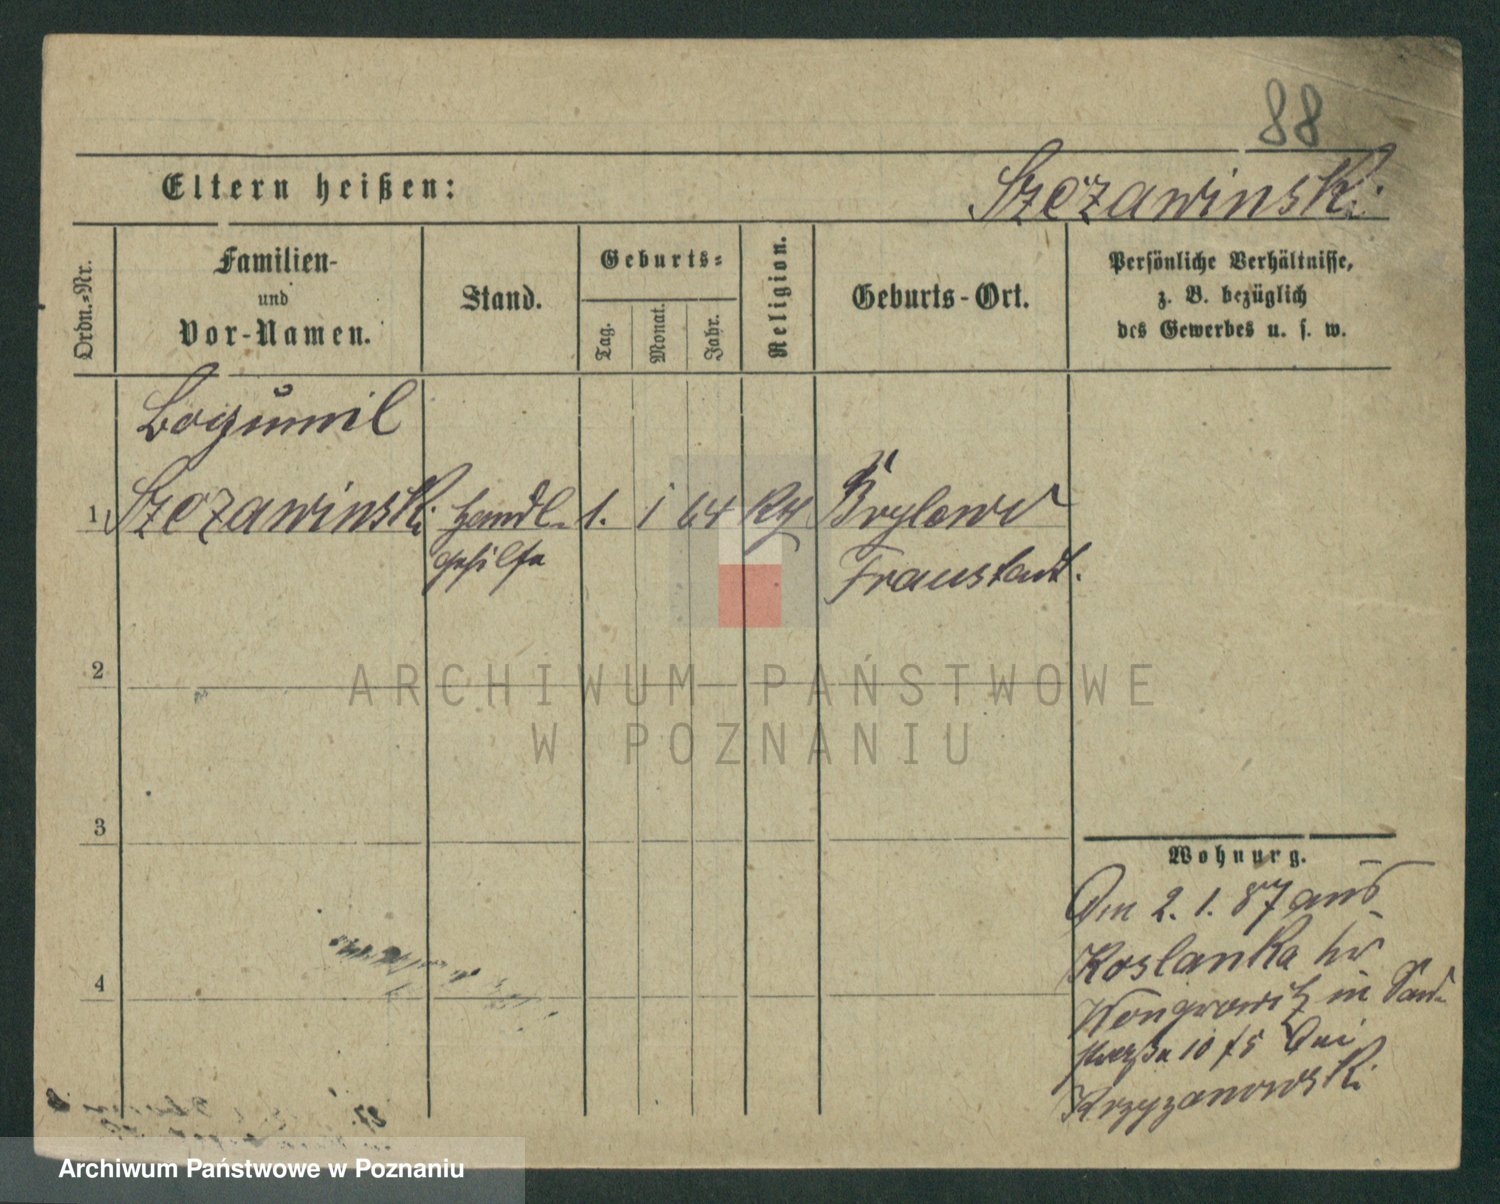 88
Eltern heißen:
Szczawinski
Ordn.-Nr.
Familien-
und
Vor-Namen.
Stand.
Geburts-
Tag.
Monat.
Jahr.
Religion.
Geburts-Ort.
Persönliche Verhältnisse,
z. B. bezüglich
des Gewerbes u. s. w.
Bogumil
1 Szczawinski Handl- 1. 1 64 Brylewo
gehilfe Fraustadt.
2
3
4
Wohnung.
Am 2. 1. 87 aus
Koslanka
Wongrowitz in Sand-
straße 10 bei
Krzyzanowski
ARCHIWUM PAŃSTWOWE
W POZNANIU
Archiwum Państwowe w Poznaniu